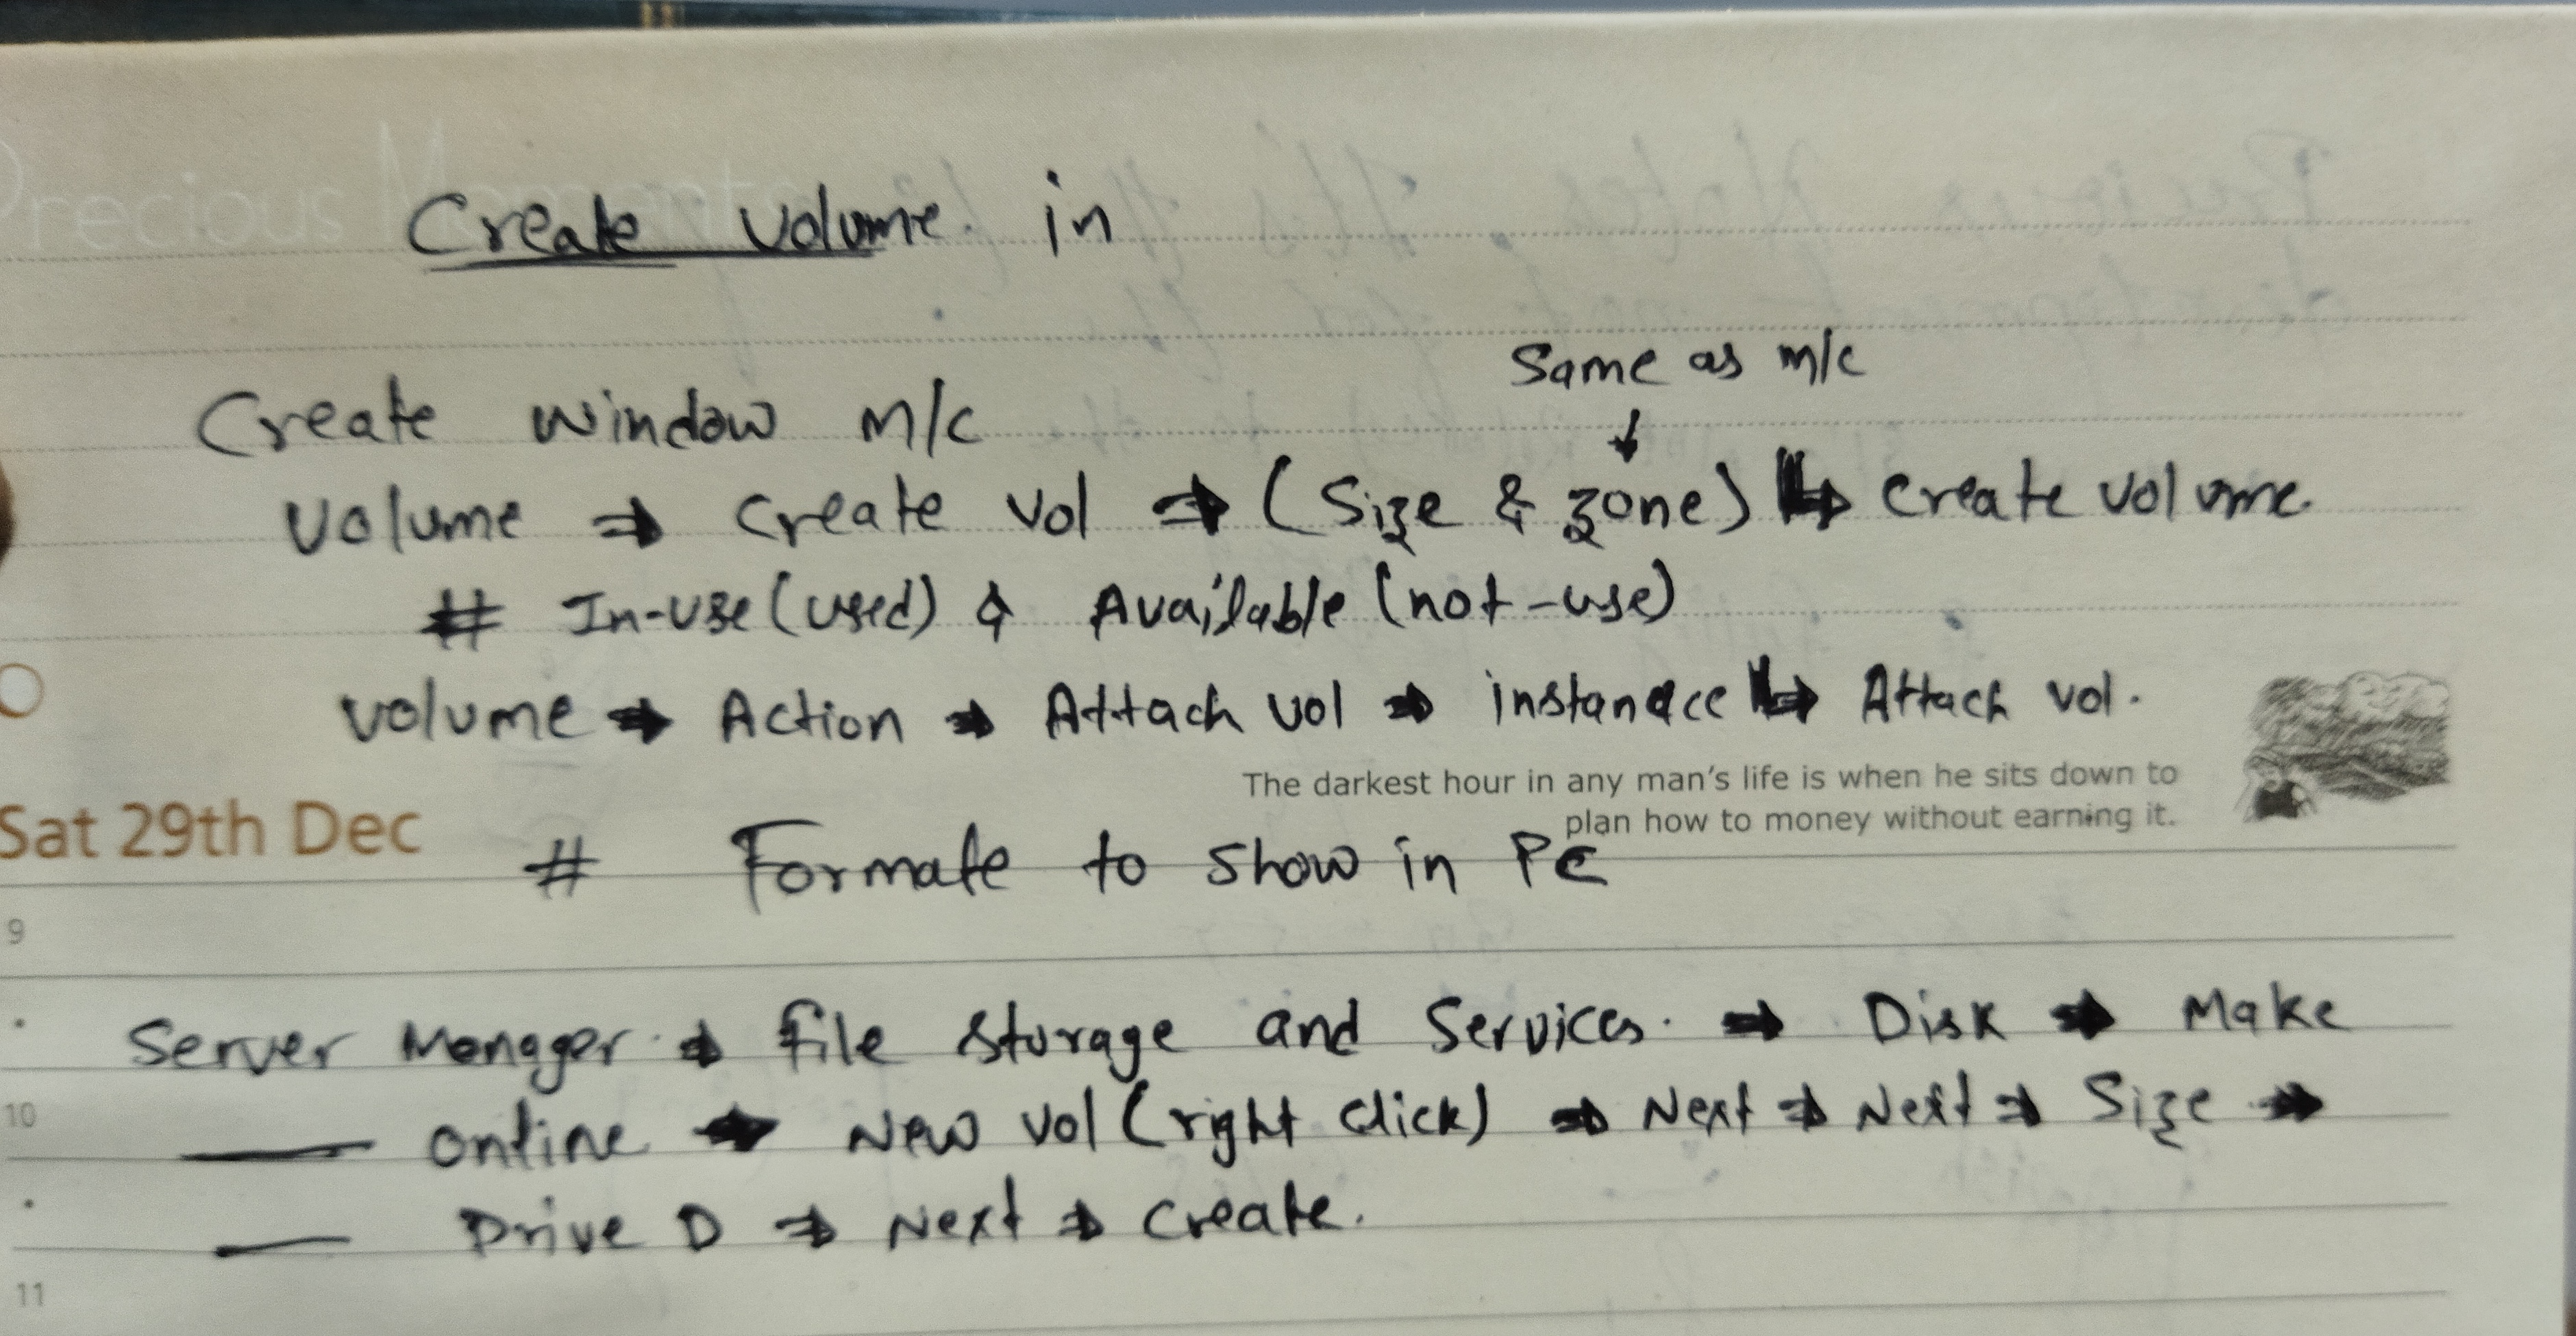 Precious Moments
Create volume in
Same as m/c
↓
Create window m/c
Volume ⇒ Create vol ⇒ (Size & zone) ↳ Create volume.
# In-use (used) & Available (not-use)
volume ⇒ Action ⇒ Attach vol ⇒ instanace ↳ Attach vol.
The darkest hour in any man's life is when he sits down to
plan how to money without earning it.
Sat 29th Dec
# Formate to show in PC
9
Server Manager ⇒ file storage and Services. ⇒ Disk ⇒ Make
10
— online ⇒ New vol (right click) ⇒ Next ⇒ Next ⇒ Size ⇒
— Drive D ⇒ Next ⇒ Create.
11